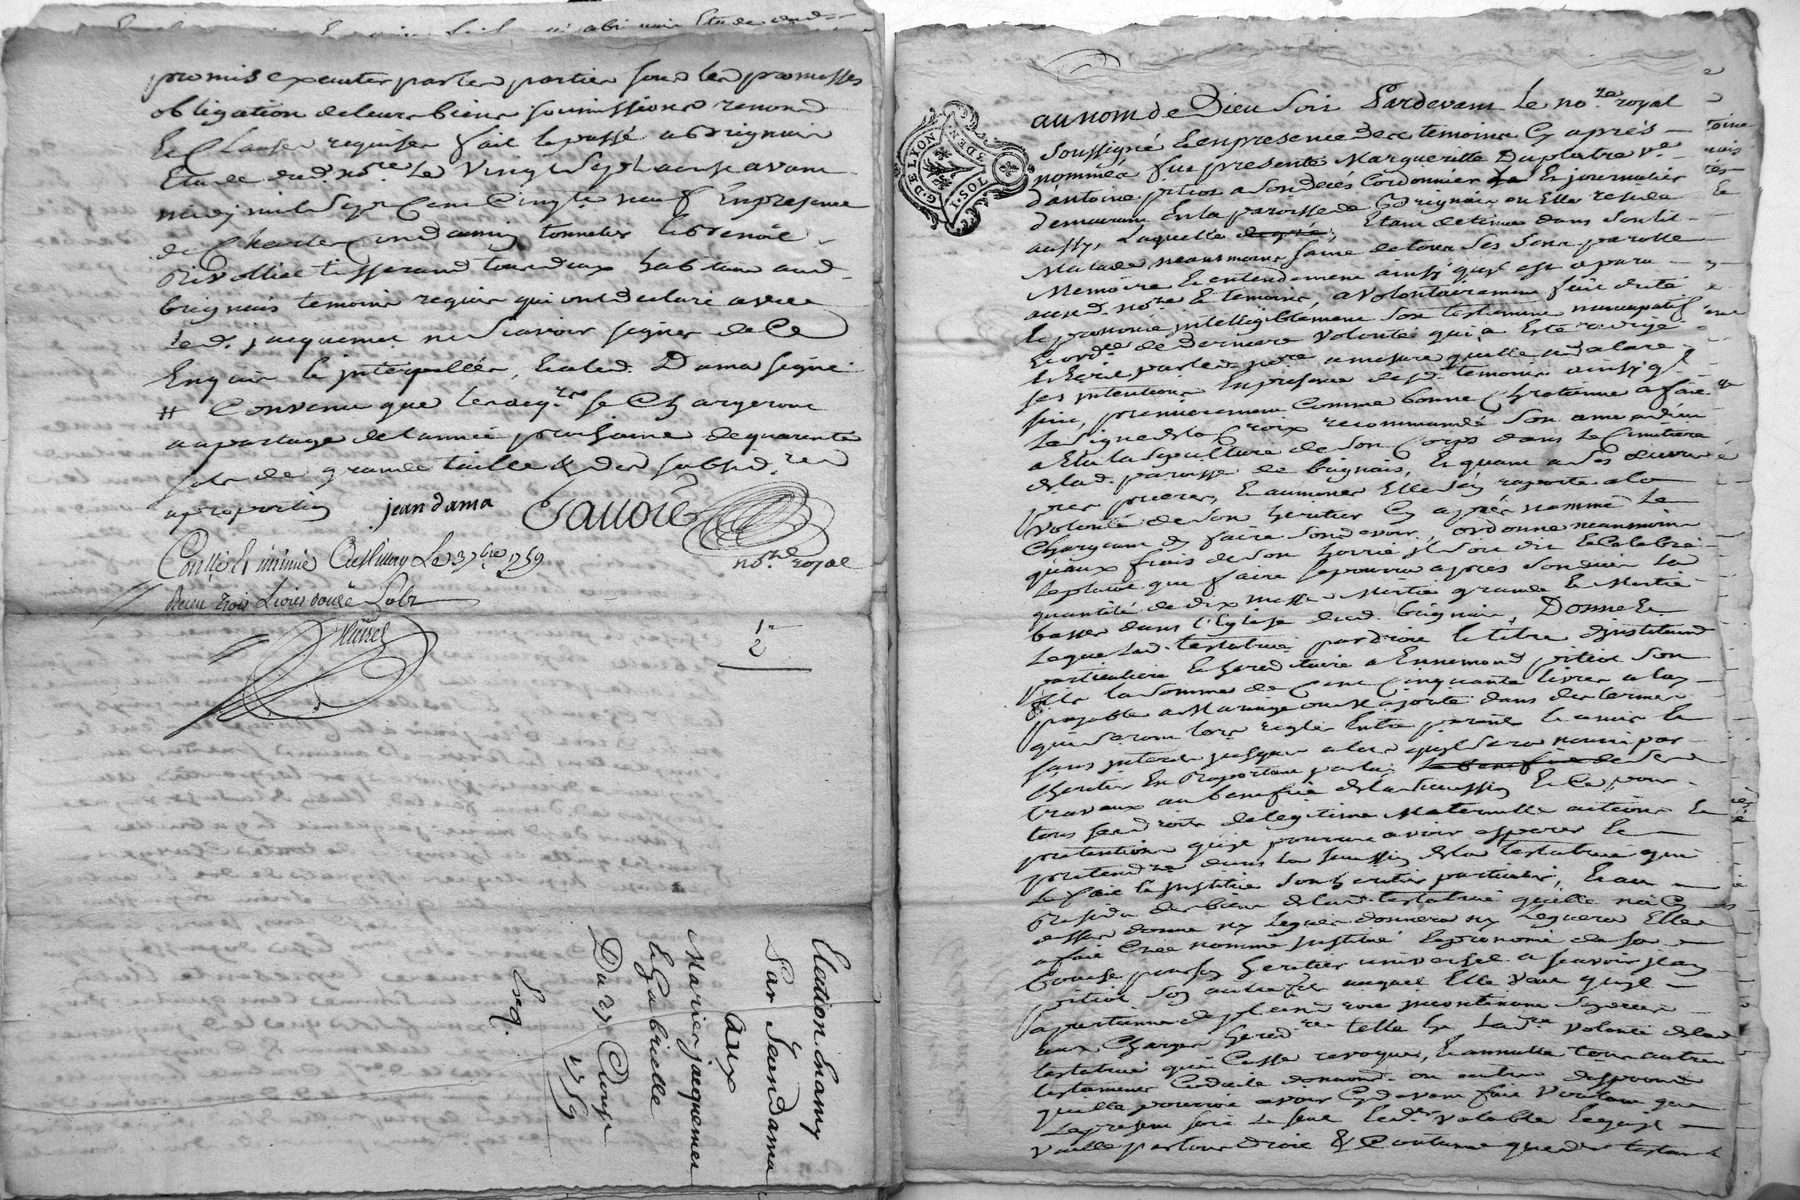 promis executer par les parties sous les promesses
obligation de leurs biens soumissions renond
Et Clauses requises fait et passé a brignais
Etude dud. no.re Le Vingt Sept aoust avant
midy mil Sept Cent Cinqte neuf En presence
de Charles tonnelier Et benoit
tisserand tous deux habitans aud.
brignais temoins requis qui ont declaré avec
led. jacquemet ne Scavoir signer de Ce
Enquis Et interpellés, Et led. Dama signé
# Convenu que les acq.rs se Chargeront
au partage de l'année prochaine de quarente
sols de grande taille & des subsid.res
a proportion jean dama
no.re royal
Con.llé Et insinué Le 3 7bre 1759
Recu trois Livres douze Sols
1
2
Election en amy
Par Jean Dama
aux
Maries jacquemet
Et Gabrielle
Du 27 Aoust
1759
Exq.
G. DE LYON
3. DEN
I. SOL
au nom de Dieu soit Pardevant Le no.re royal
soussigné Et en presence des temoins Cy aprés
nommés fut presente Margueritte Duplatre v.e
d'antoine pitiot a son decés Cordonnier Et journalier
demeurant En la paroisse de Brignais ou Elle reside
aussy, Laquelle Etant detenue dans son lit
Malade neanmoins saine de tous ses sens parolle
Memoire Et entendement ainsi qu'il est aparu
aud. no.re Et temoins, a volontairement fait dicté
Et prononcé intelligiblement son testament nuncupatif
Et ord.ce de derniere volonté qui a Esté redigé
Et Ecrit par led. no.re a mesure qu'elle a declaré
ses intentions En presence desd. temoins ainsi q'
suit, premierement Comme bonne Chretienne a fait
Le signe de la Croix recommandé son ame a dieu
a Elu la sepulture de son Corps dans Le Cimetiere
de lad. paroisse de brignais, Et quant a ses œuvres
pies prieres, Et aumones Elle s'en raporte a la
volonté de son heritier Cy aprés nommé Le
Chargeant d'y faire son devoir, ordonne neanmoins
qu'aux frais de son hoirie il soit dit Et Celebré
Le plutot que faire se pourra apres son decés La
quantité de dix messes Moitié grandes Et Moitié
basses dans l'Eglise dud. brignais, Donne Et
Legue Lad. testatrice par droit Et titre d'institution
particuliere Et hereditaire a Ennemond pitiot son
fils la somme de Cent Cinquante livres a luy
payable a Mariage ou Majorité dans des termes
qui seront lors reglés Entre parens Et amis Et
sans interets jusques a lors qu'il sera nourri par
heritier En raportant par luy ses
travaux au benefice de la succession Et Ce pour
tous ses droits de legitime Maternelle actions Et
pretentions qu'il pourroit avoir esperer Et
pretendre dans la succession de la testatrice qui
Le fait Et institue son heritier particulier, Et au
Residu des biens de lad. testatrice qu'elle n'a Cy
dessus donné ny legué donnera ny Leguera Elle
a fait Créé nommé institué Et prononcé de sa
bouche pour son heritier universel a scavoir jean
pitiot son autre fils auquel Elle veut qu'il
apartienne de plein droit incontinent son decés
aux Charges hered.res telle Est La d.re volonté de la
testatrice qui Casse revoque, Et annulle tous autres
testaments Codicile donnaons ou autres dispositions
qu'elle pourroit avoir Cy devant fait Voulant que
Le present soit Le seul Et d.er valable Et qu'il
vaille par tous droit & Coutume que de testament